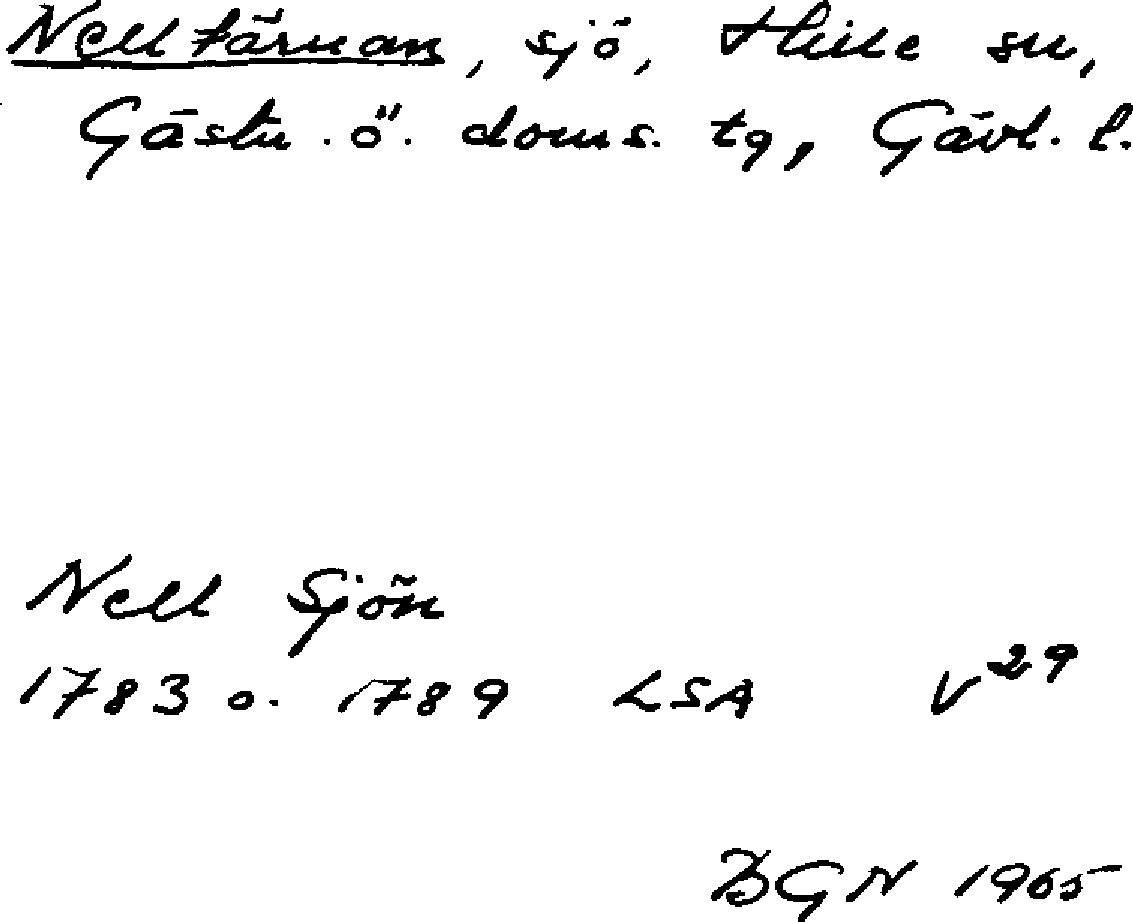 Nelltärnan, sjö, Hille sn,
Gästr. ö. doms. tg, Gävl. l.
Nell Sjön
1783 o. 1789 LSA V29
BGN 1965